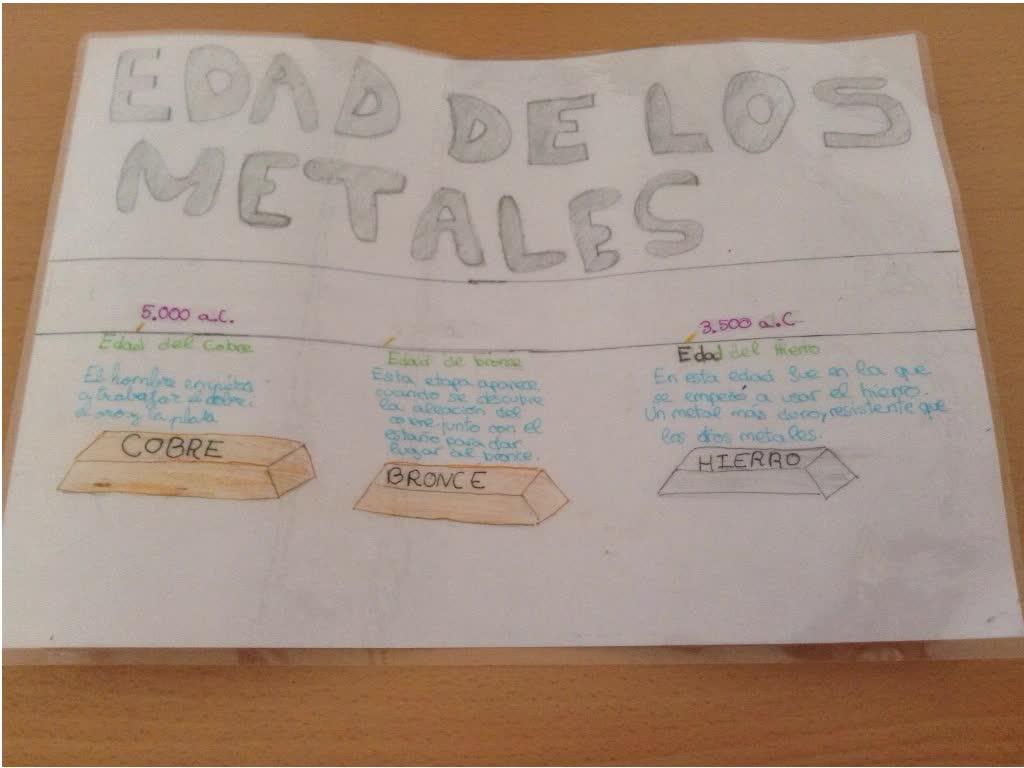 EDAD DE LOS
METALES
5.000 a.C.
3.500 a.C
Edad del Cobre
Edad de bronce
Edad del Hierro
El hombre empieza
a trabajar el cobre
el oro y la plata
Esta etapa aparece
cuando se descubre
la aleación del
cobre junto con el
estaño para dar
lugar al bronce.
En esta edad fue en la que
se empezó a usar el hierro.
Un metal más duro, resistente que
los dios metales.
COBRE
BRONCE
HIERRO